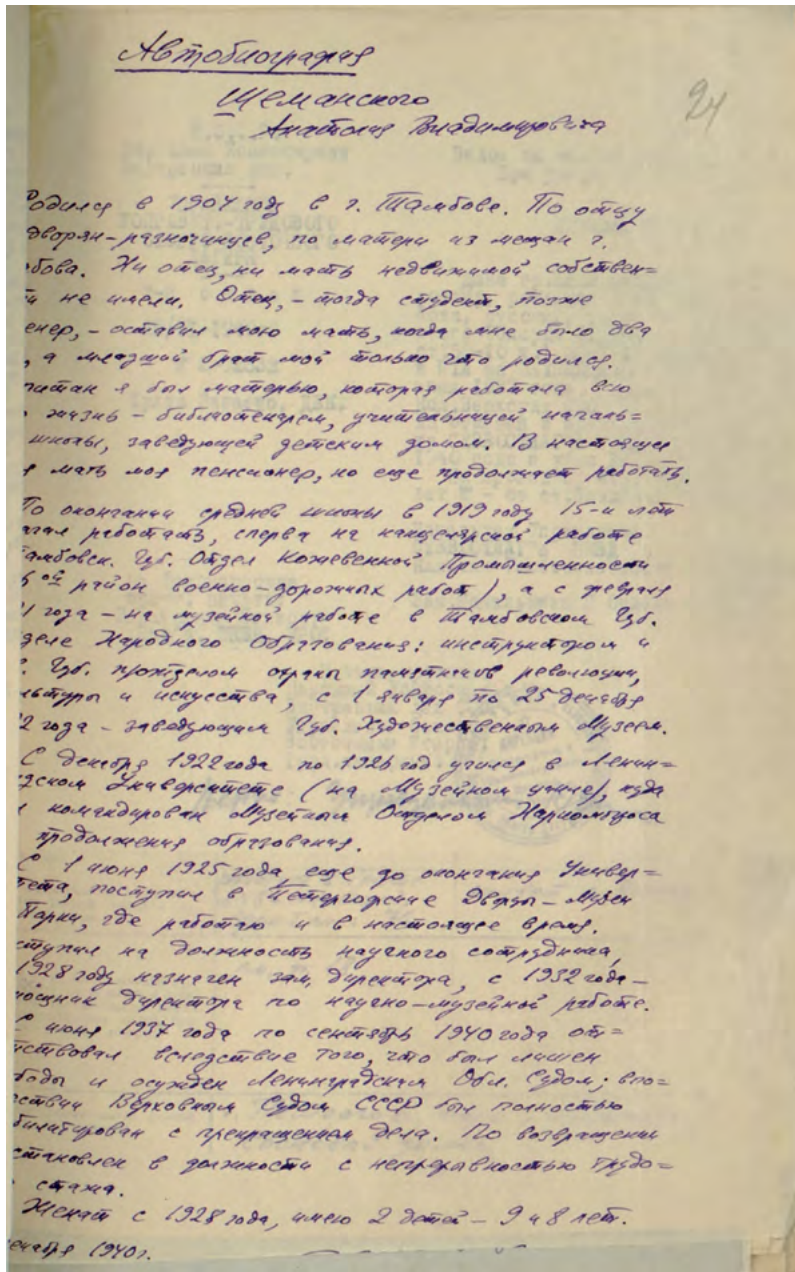 Автобиография
Шеманского
Анатолия Владимировича
24
Родился в 1904 году в г. Тамбове. По отцу
дворян-разночинцев, по матери из мещан г.
бова. Ни отец, ни мать недвижимой собствен=
ти не имели. Отец, – тогда студент, позже
енер, – оставил мою мать, когда мне было два
, а младший брат мой только что родился.
питан я был матерью, которая работала всю
жизнь – библиотекарем, учительницей началь=
школы, заведующей детским домом. В настоящее
я мать моя пенсионер, но еще продолжает работать.
По окончании средней школы в 1919 году 15-и лет
ачал работать, сперва на канцелярской работе
Тамбовск. Губ. Отдел Кожевенной Промышленности
5ой район военно-дорожных работ), а с февраля
1 года – на музейной работе в Тамбовском Губ.
деле Народного Образования: инструктором и
. Губ. подотделом охраны памятников революции,
льтуры и искусства, с 1 января по 25 декабря
22 года – заведующим Губ. Художественным Музеем.
С декабря 1922 года по 1926 год учился в Ленин=
дском Университете (на Музейном цикле), куда
л командирован Музейным Отделом Наркомпроса
продолжения образования.
С 1 июня 1925 года, еще до окончания Универ=
тета, поступил в Петергофские Дворцы-Музеи
Парки, где работаю и в настоящее время.
ступил на должность научного сотрудника,
1928 году назначен зам. директора, с 1932 года –
мощник директора по научно-музейной работе.
С июня 1937 года по сентябрь 1940 года от=
тствовал вследствие того, что был лишен
боды и осужден Ленинградским Обл. Судом; впо=
ствии Верховным Судом СССР был полностью
билитирован с прекращением дела. По возвращении
становлен в должности с непрерывностью трудо=
стажа.
Женат с 1928 года, имею 2 детей – 9 и 8 лет.
екабря 1940 г.